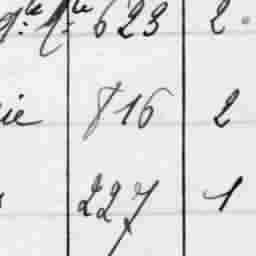 623 2
ie 816 2
227 1